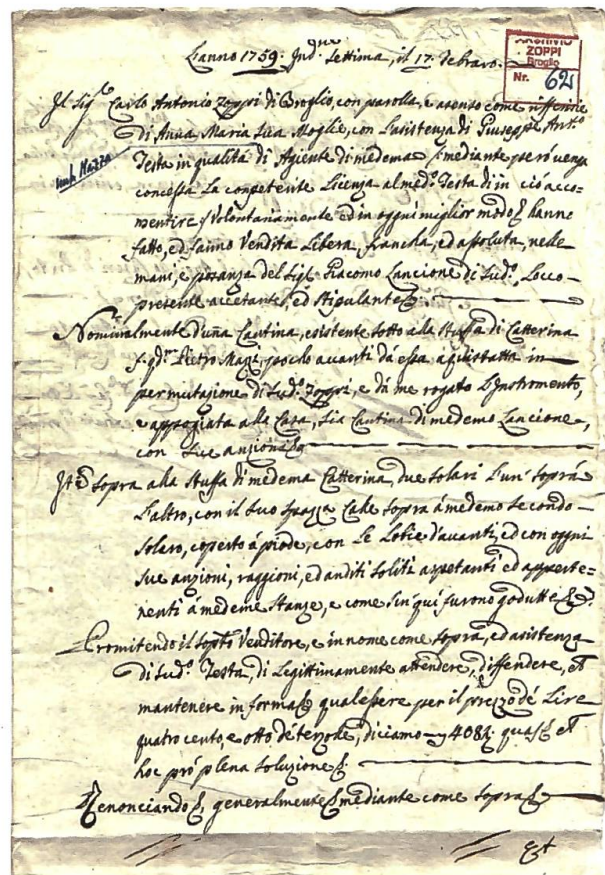 L'anno 1759: Ind.ne Settima, il 17. Febraro.
ARCHIVIO
ZOPPI
Broglio
Nr. 62
Il Sig.r Carlo Antonio Zoppi di Broglio, con parolla, e
di Anna Maria Sua Moglie, con l'asistenza di Giuseppe Ant.o
Testa in qualità di Agiente di medema / mediante però venga
concessa La conpetente Licenza al med.o Testa di in ciò acco-
mentire / Volontariamente ed in oggni miglior modo hanno
fatto, ed fanno Vendita Libera, francha, ed assoluta, nelle
mani, e posanza del Sig.r Giacomo Lancione di Sud.o Locco
presente accetante, ed stipulante
Nominalmente d'una Cantina, esistente sotto alla Stuffa di Catterina
q.dm Pietro Mazz. pocho avanti da essa aquistatta in
permutazione di Sud.o Zoppi, e da me rogato L'Instromento,
e appogiata alla Casa, sia Cantina di medemo Lancione,
con sue anzioni
It.m sopra alla Stuffa di medema Catterina, due solari l'un' soprá
L'altro, con il suo spazza Cahe sopra á medemo secondo
Solaro, coperto á piode, con Le Lobie d'avanti, ed con oggni
sue anzioni, raggioni, ed anditi soliti aspetanti ed apperte=
nenti á medeme Stanze, e come sin' qui furono godutte
Promitendo il sop.to Venditore, e in nome come sopra, ed asistenza
di Sud.o Testa, di Legittimamente attendere, diffendere, et
mantenere in forma qual essere per il prezzo de Lire
quatro cento, e otto de terzole, diciamo 408
hoc pró plena soluzione
Renonciando generalmente mediante come sopra